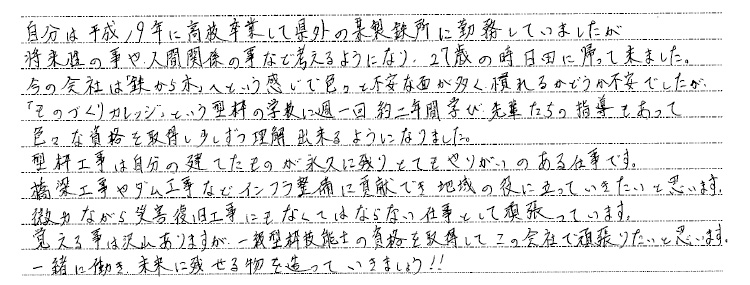 自分は平成19年に高校卒業して県外の某製錬所に勤務していましたが
将来性の事や人間関係の事など考えるようになり、27歳の時日田に帰って来ました。
今の会社は「鉄から木」へという感じで色々と不安な面が多く慣れるかどうか不安でしたが、
「ものづくりカレッジ」という型枠の学校に週一回約二年間学び先輩たちの指導もあって
色々な資格を取得し少しずつ理解出来るようになりました。
型枠工事は自分の建てたものが永久に残りとてもやりがいのある仕事です。
橋梁工事やダム工事などインフラ整備に貢献でき地域の役に立っていきたいと思います。
微力ながら災害復旧工事にもなくてはならない仕事として頑張っています。
覚える事は沢山ありますが、一級型枠技能士の資格を取得してこの会社で頑張りたいと思います。
一緒に働き未来に残せる物を造っていきましょう!!